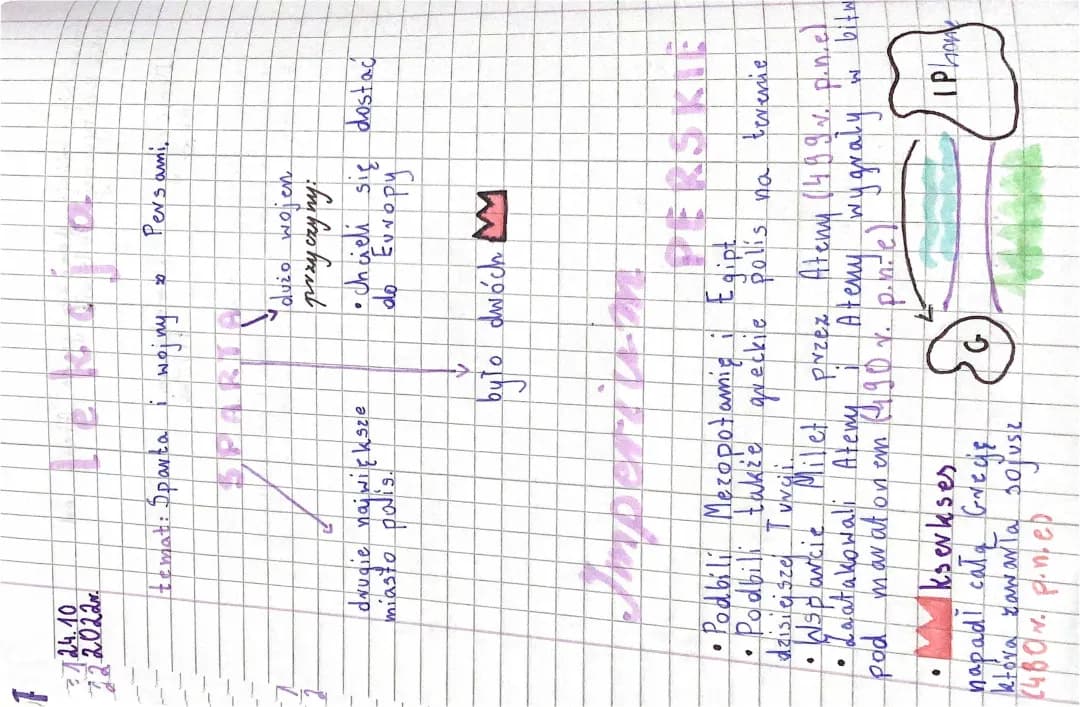 1
24.10
2022r.
lekcja
temat: Sparta i wojny z Persami.
SPARTA
drugie największe
miasto polis.
było dwóch
dużo wojen
przyczyny:
• Chcieli się dostać
do Europy
Imperium
PERSKIE
• Podbili Mezopotamię i Egipt
• Podbili także greckie polis na terenie
dzisiejszej Turcji.
• Wsparcie Milet przez Ateny (499r. p.n.e)
• Zaatakowali Ateny i Ateny wygrały w bitw
pod maratonem (490 r. p.n.e)
• kserkses
napadł całą Grecję
która zawarła sojusz
(480r. p.n.e)
G
IP